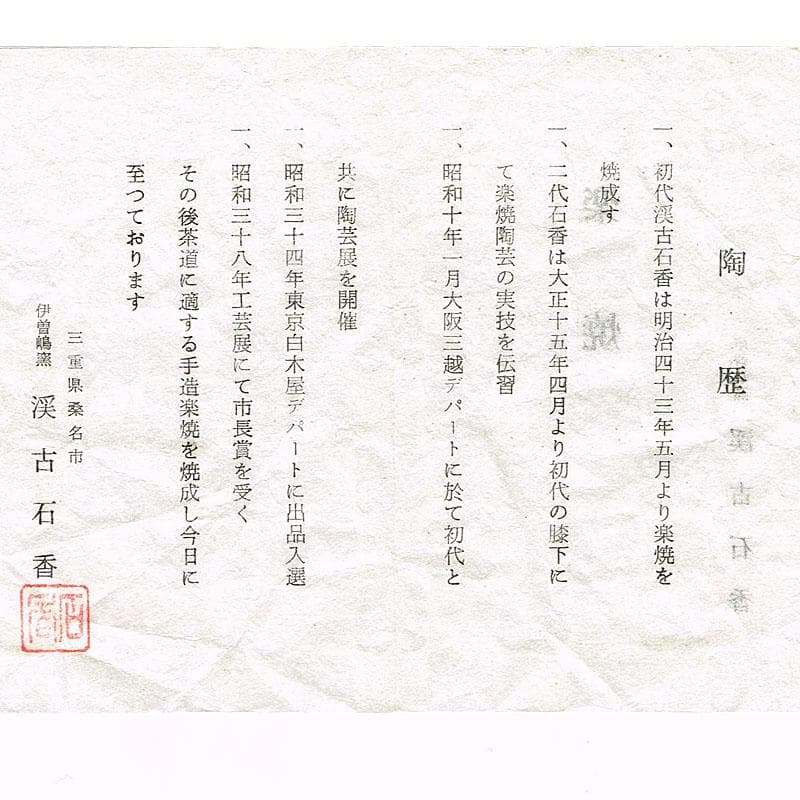 陶歴
一、初代渓古石香は明治四十三年五月より楽焼を
焼成す
一、二代石香は大正十五年四月より初代の膝下に
て楽焼陶芸の実技を伝習
一、昭和十年一月大阪三越デパートに於て初代と
共に陶芸展を開催
一、昭和三十四年東京白木屋デパートに出品入選
一、昭和三十八年工芸展にて市長賞を受く
その後茶道に適する手造楽焼を焼成し今日に
至つております
三重県桑名市
伊曽嶋窯 渓古石香
石香